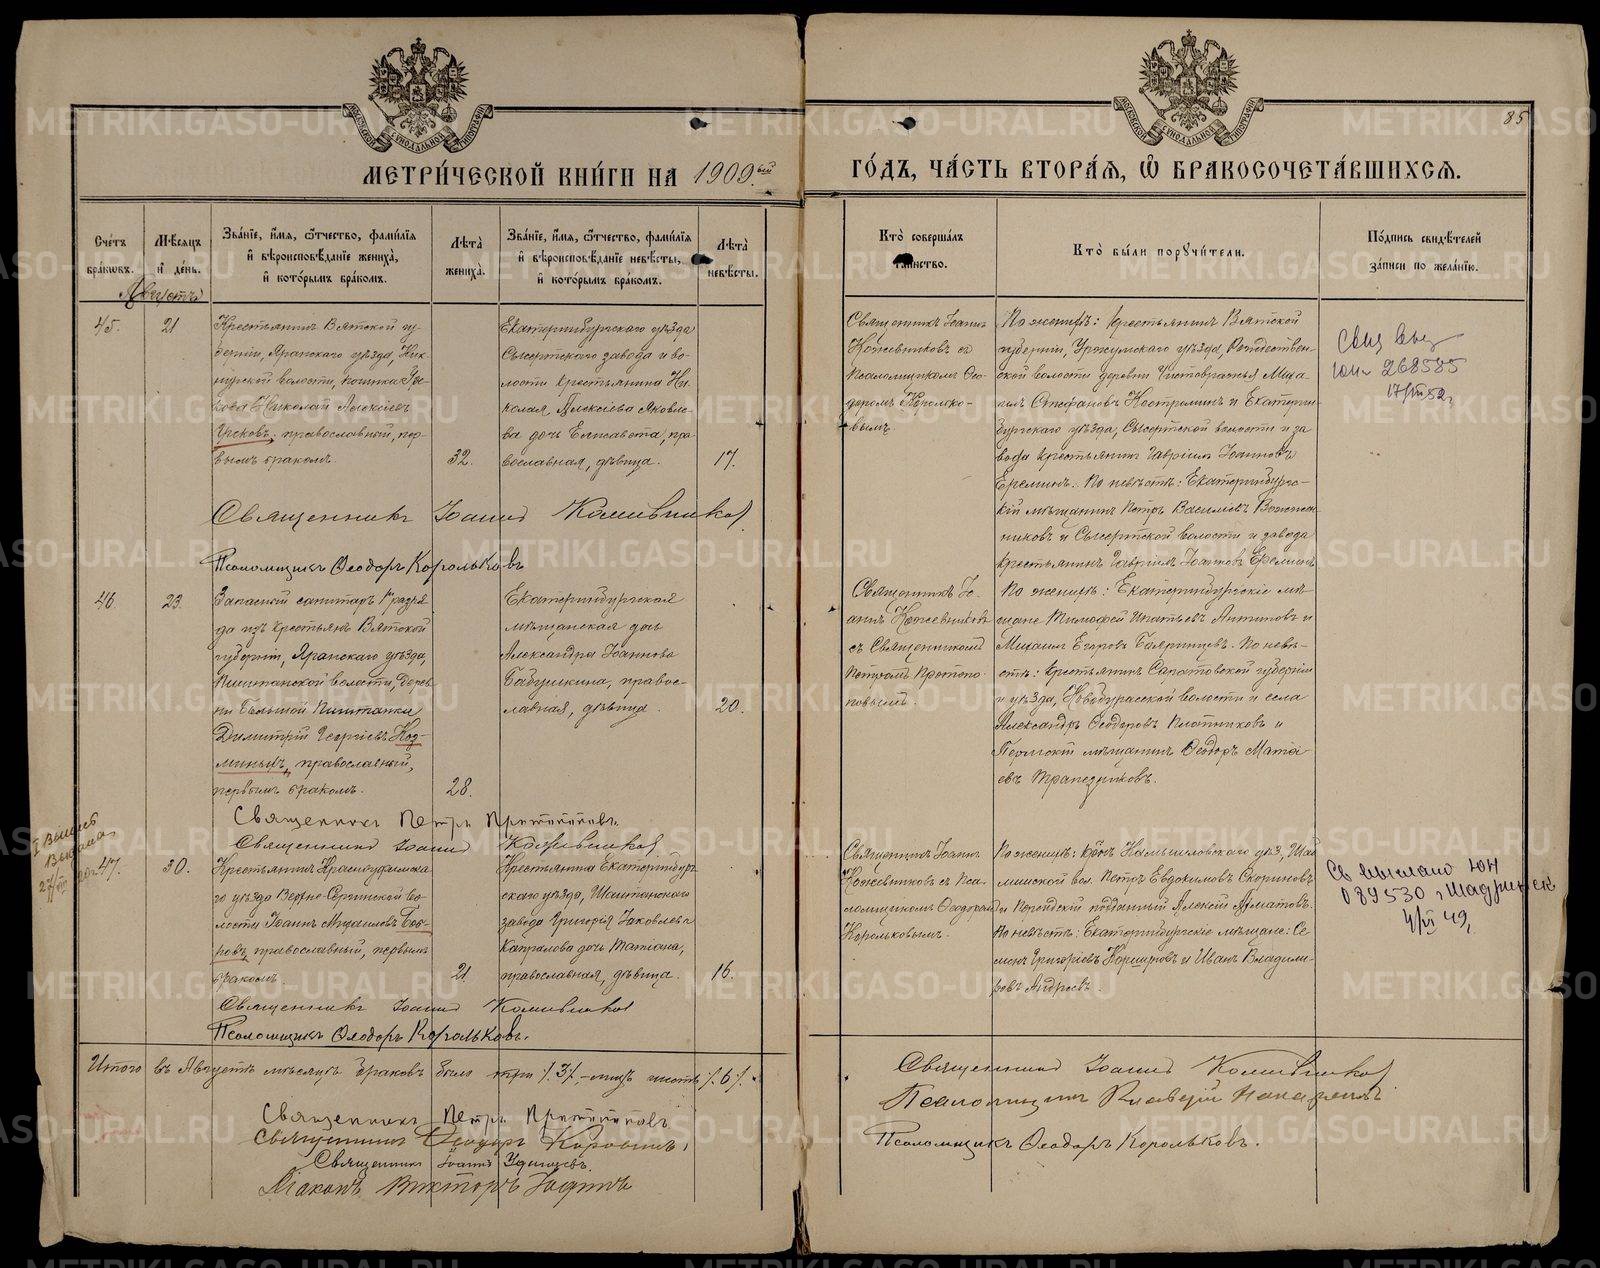 85
МЕТРИ́ЧЕСКОЙ КНИ́ГИ НА 1909.ый
ГО́ДЪ, ЧА́СТЬ ВТОРА́Я, Ѽ БРАКОСОЧЕТА́ВШИХСЯ.
Сче́тъ бра́ковъ.
Мѣ́сяцъ и де́нь.
Зва́нїе, и́мя, ѻ҆́тчество, фами́лїя и҆ вѣроисповѣ́данїе жениха̀, и҆ кото́рымъ бра́комъ.
Лѣ́та̀ жениха̀.
Зва́нїе, и́мя, ѻ҆́тчество, фами́лїя и҆ вѣроисповѣ́данїе невѣ́сты, и҆ кото́рымъ бра́комъ.
Лѣ́та̀ невѣ́сты.
Кто̀ соверша́лъ таинство.
Кто̀ бы́ли пору́чители.
По́дпись свидѣ́телей за́писи по жела́нїю.
Августъ
45.
21
Крестьянинъ Вятской гу-
берніи, Яранскаго уѣзда,
волости, починка
Николай Алексіевъ
православный, пер-
вымъ бракомъ.
32.
Екатеринбургскаго уѣзда
Сысертскаго завода и во-
лости крестьянина Ни-
колая Алексіева Яковле-
ва дочь Елисавета, пра-
вославная, дѣвица.
17.
Священникъ Іоаннъ
Кожевниковъ съ
псаломщикомъ Ѳео-
доромъ Королько-
вымъ
По женихѣ: крестьянинъ Вятской
губерніи, Уржумскаго уѣзда, Рождествен-
ской волости деревни Чистовражья Миха-
илъ Стефановъ Костроминъ и Екатерин-
бургскаго уѣзда, Сысертской волости и за
вода крестьянинъ Гавріилъ Іоанновъ
Ереминъ. По невѣстѣ: Екатеринбургс-
кій мѣщанинъ Петръ Васильевъ
никовъ и Сысертской волости и завода
крестьянинъ Гавріилъ Іоанновъ Ереминъ
268585
Священникъ Іоаннъ Кожевниковъ
Псаломщикъ Ѳеодоръ Корольковъ
46.
23.
Запасный санитаръ 1 разря
да изъ крестьянъ Вятской
губерніи, Яранскаго уѣзда,
Пиштанской волости, дерев
ни Большой Пиштанки
Димитрій Георгіевъ Коз-
миныхъ, православный,
первымъ бракомъ.
28.
Екатеринбургская
мѣщанская дочь
Александра Іоаннова
Бабушкина, правос-
лавная, дѣвица.
20.
Священникъ Іо-
аннъ Кожевниковъ
съ Священникомъ
Петромъ Протопо-
повымъ.
По женихѣ: Екатеринбургскіе мѣ-
щане Тимофей Игнатьевъ Антиповъ и
Михаилъ Егоровъ Бояринцевъ. По невѣ-
стѣ: крестьянинъ Саратовской губерніи
и уѣзда, Новобурасской волости и села
Александръ Ѳеодоровъ Плотниковъ и
Пермскій мѣщанинъ Ѳеодоръ Матѳе-
евъ Трапезниковъ.
Священникъ Петръ Протопоповъ.
Священникъ Іоаннъ Кожевниковъ
47.
30.
Крестьянинъ Красноуфимска
го уѣзда Верхне-Сергинской во
лости Іоаннъ Михаиловъ Боб-
ровъ, православный, первымъ
бракомъ
21.
Крестьянина Екатеринбург
скаго уѣзда, Шайтанскаго
завода Григорья Іаковлева
Капралова дочь Татіана,
православная, дѣвица.
16.
Священникъ Іоаннъ
Кожевниковъ съ Пса-
ломщикомъ Ѳеодоромъ
Корольковымъ.
По женихѣ: крѣнъ Камышловскаго уѣз,
вол. Петръ Евдокимовъ Скориновъ
и Персидскій подданный Алексій Ахматовъ.
По невѣстѣ: Екатеринбургскіе мѣщане: Се-
менъ Григоріевъ Коршуновъ и Иванъ Владими-
ровъ Андреевъ.
Св выслано ЮН
089530 г. Шадринск
4/VI 49
Священникъ Іоаннъ Кожевниковъ
Псаломщикъ Ѳеодоръ Корольковъ.
Итого въ Августѣ мѣсяцѣ браковъ было три /.3/, лицъ шесть /.6/.
Священникъ Петръ Протопоповъ
Священникъ Ѳеодоръ Коровинъ,
Священникъ Іоаннъ Удинцевъ.
Діаконъ Викторъ
Священникъ Іоаннъ Кожевниковъ
Псаломщикъ
Псаломщикъ Ѳеодоръ Корольковъ.
METRIKI.GASO-URAL.RU